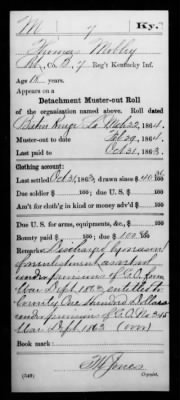 M 7 Ky.
Thomas Molley
Co. B, 7 Reg't Kentucky Inf.
Age 18 years.
Appears on a
Detachment Muster-out Roll
of the organization named above. Roll dated
Baton Rouge La Mch 22, 1864.
Muster-out to date Feb 29, 1864.
Last paid to Oct 31, 1863.
Clothing account:
Last settled Oct 31, 1863; drawn since $
Due soldier $ 100; due U. S. $ 100
Am't for cloth'g in kind or money adv'd $ 100
Due U. S. for arms, equipments, &c., $ 100
Bounty paid $ 100; due $ 100
Remarks: Discharged by reason
of reenlistment as vet vol
under provisions of G.O.
War Dept. 1863, entitled to
bounty One Hundred Dollars
under provision of G.O. No 315
War Dept. 1863 (over)
Book mark:
Jones
(349) Copyist.